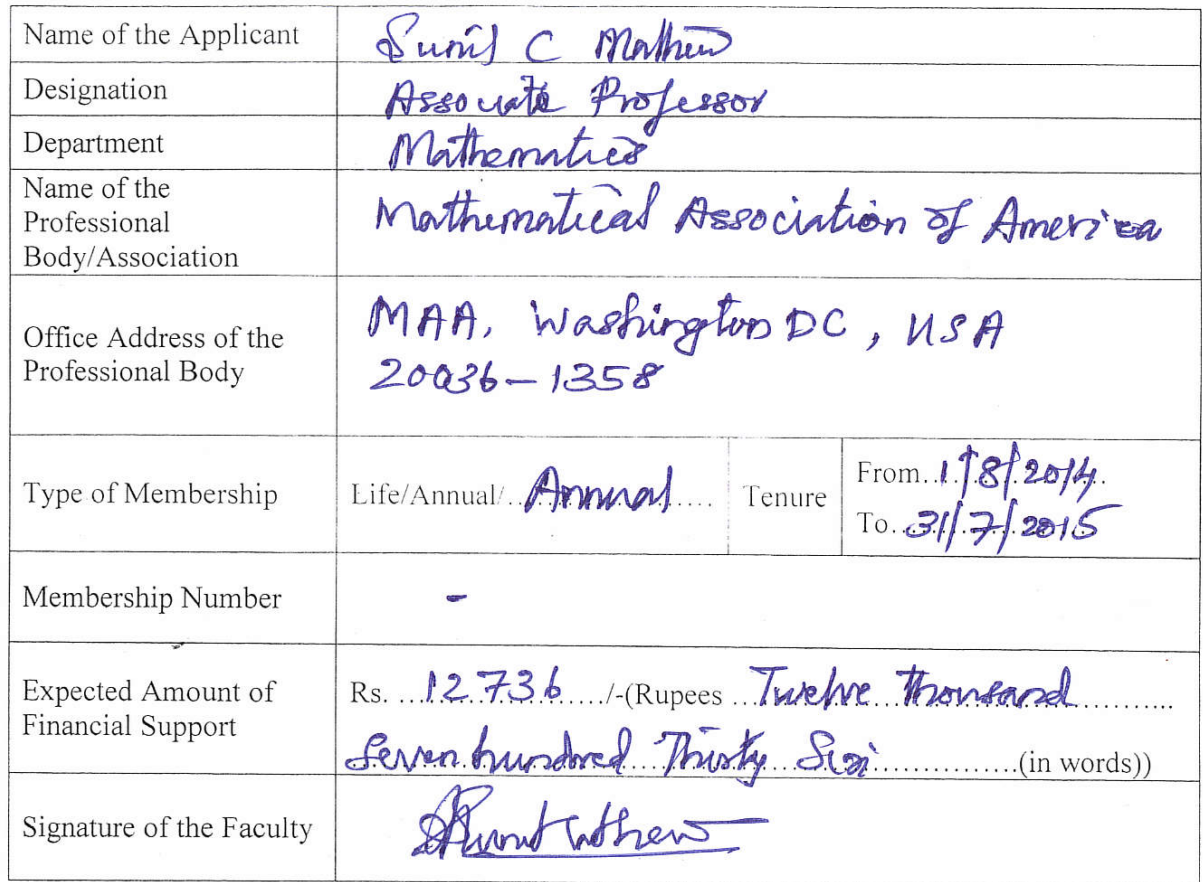 Name of the Applicant Sunil C Mathew
Designation Associate Professor
Department Mathematics
Name of the
Professional
Body/Association
Mathematical Association of America
Office Address of the
Professional Body
MAA, Washington DC, USA
20036-1358
Type of Membership Life/Annual/ Annual Tenure
From 1/8/2014
To 31/7/2015
Membership Number -
Expected Amount of
Financial Support
Rs. 12736 /-(Rupees Twelve Thousand
Seven hundred Thirty Six (in words))
Signature of the Faculty